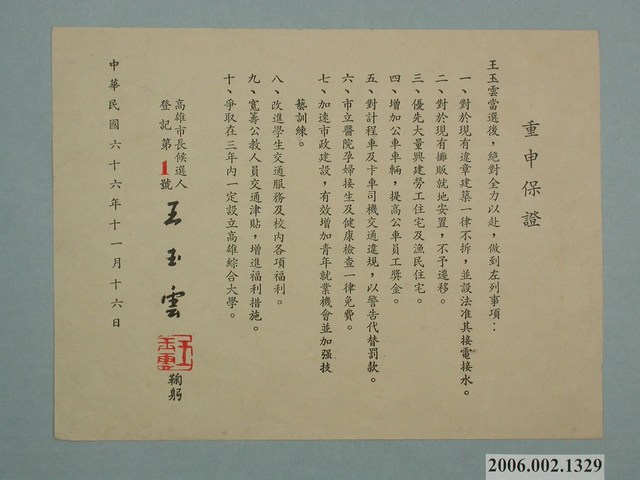 重申保證
王玉雲當選後，絕對全力以赴，做到左列事項：
一、對於現有違章建築一律不拆，並設法准其接電接水。
二、對於現有攤販就地安置，不予遷移。
三、優先大量興建勞工住宅及漁民住宅。
四、增加公車車輛，提高公車員工獎金。
五、對計程車及卡車司機交通違規，以警告代替罰款。
六、市立醫院孕婦接生及健康檢查一律免費。
七、加速市政建設，有效增加青年就業機會並加強技
藝訓練。
八、改進學生交通服務及校內各項福利。
九、寬籌公教人員交通津貼，增進福利措施。
十、爭取在三年內一定設立高雄綜合大學。
高雄市長候選人
登記第1號
王玉雲
王玉雲
鞠躬
中華民國六十六年十一月十六日
2006.002.1329